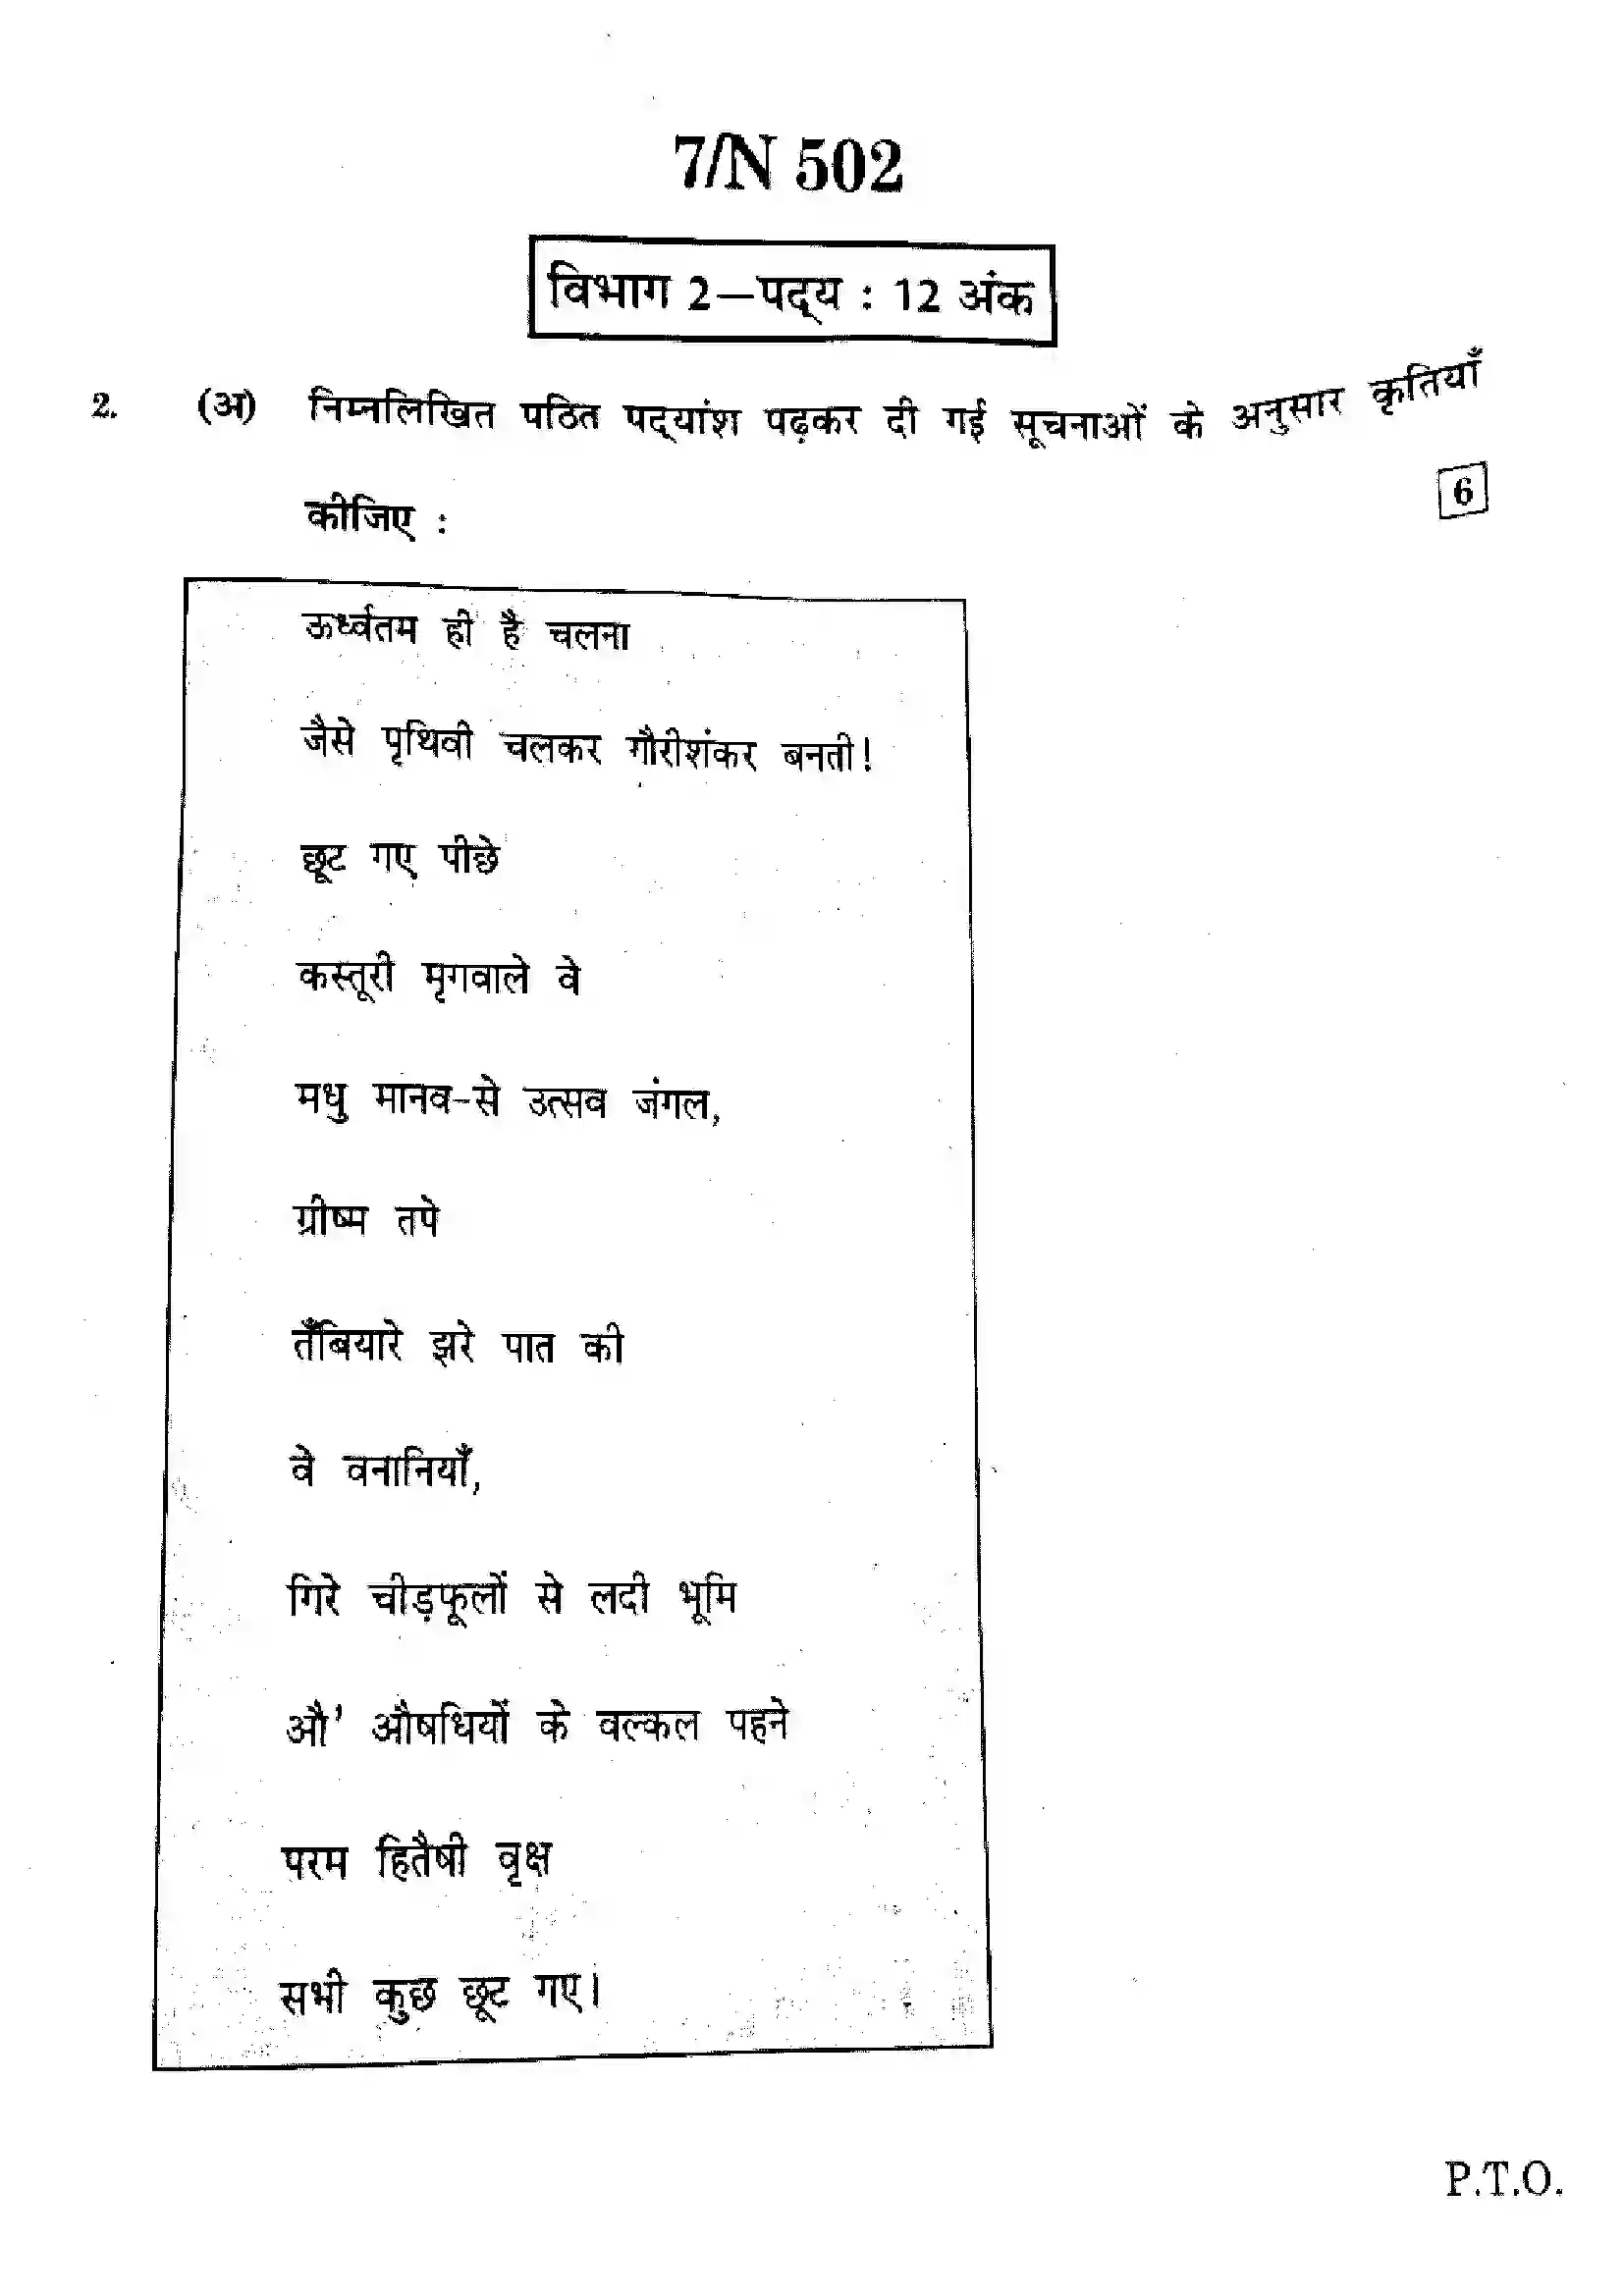 7/N 502
विभाग 2—पद्य : 12 अंक
2. (अ) निम्नलिखित पठित पद्यांश पढ़कर दी गई सूचनाओं के अनुसार कृतियाँ
कीजिए : 6
ऊर्ध्वतम ही है चलना
जैसे पृथिवी चलकर गौरीशंकर बनती!
छूट गए पीछे
कस्तूरी मृगवाले वे
मधु मानव-से उत्सव जंगल,
ग्रीष्म तपे
तँबियारे झरे पात की
वे वनानियाँ,
गिरे चीड़फूलों से लदी भूमि
औ' औषधियों के वल्कल पहने
परम हितैषी वृक्ष
सभी कुछ छूट गए।
P.T.O.